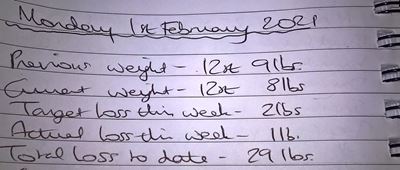 Monday 1st February 2021
Previous weight - 12st 9lbs.
Current weight - 12st 8lbs
Target loss this week - 2lbs
Actual loss this week - 1lb.
Total loss to date - 29lbs.